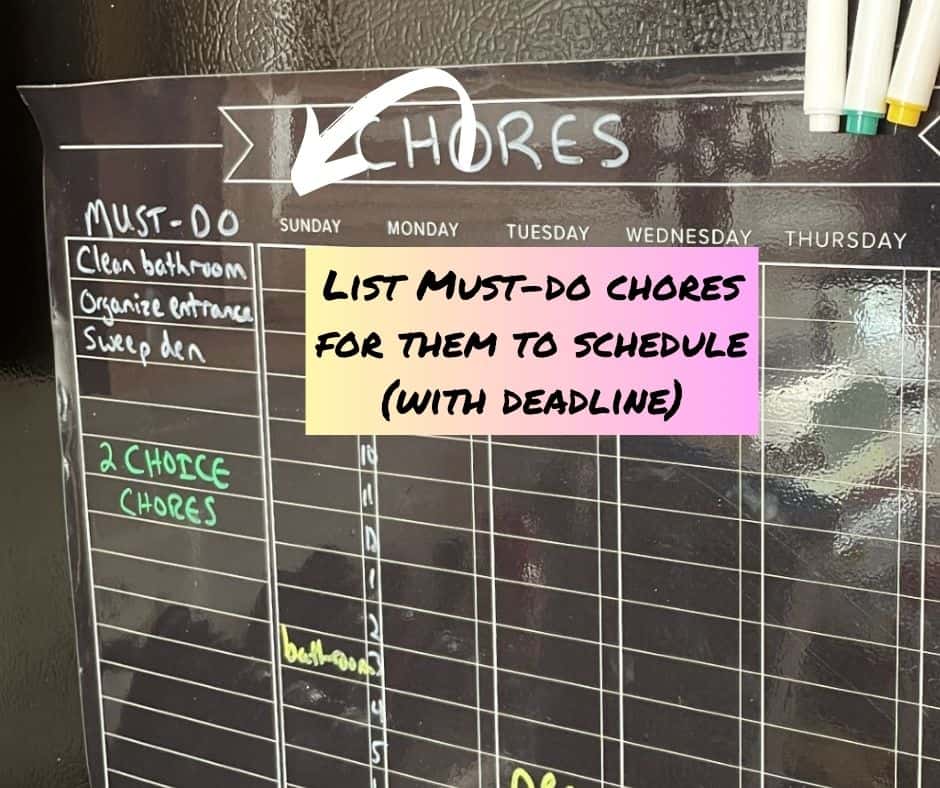 CHORES
MUST-DO
SUNDAY MONDAY TUESDAY WEDNESDAY THURSDAY
Clean bathroom
Organize entrance
Sweep den
LIST MUST-DO CHORES
FOR THEM TO SCHEDULE
(WITH DEADLINE)
10
2 CHOICE
CHORES
11
12
1
2
bathroom 3
4
5